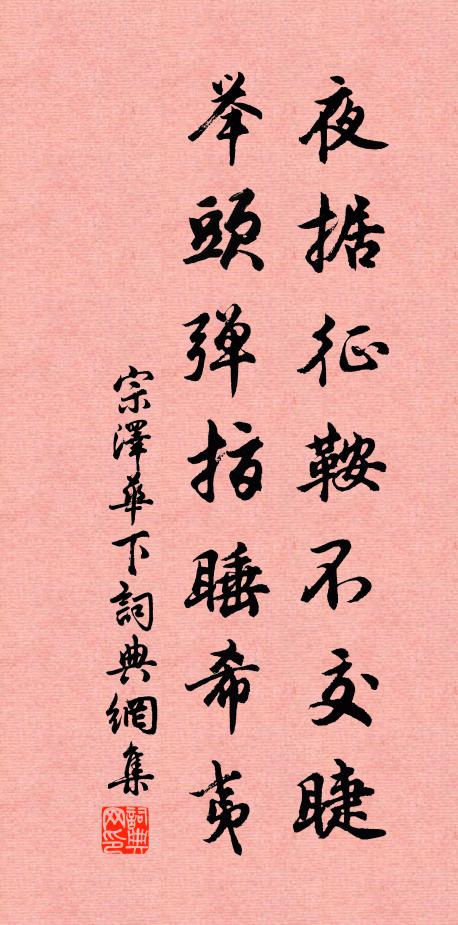 夜据征鞍不交睫
举頭弹指睡希夷
宗澤華下詞典網集
詞典网印